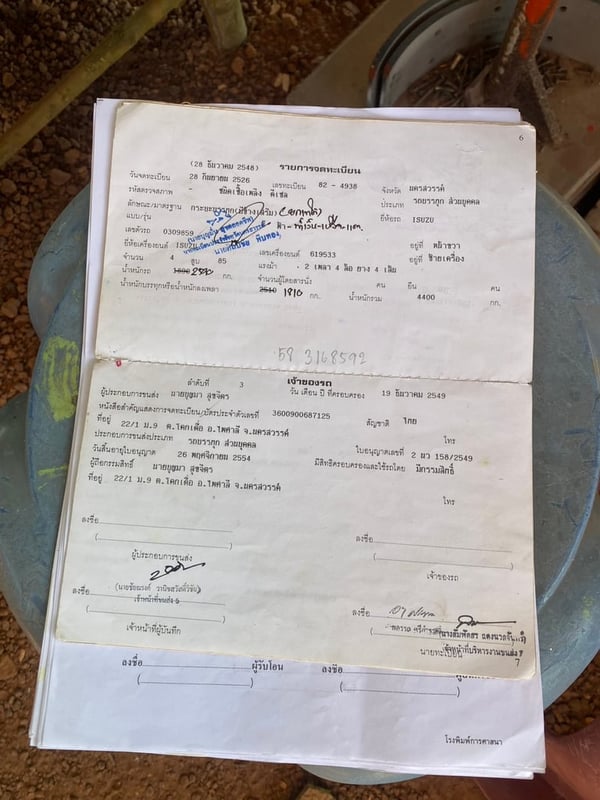 6
(28 ธันวาคม 2548) รายการจดทะเบียน
วันจดทะเบียน 28 กันยายน 2526 เลขทะเบียน 82 - 4938 จังหวัด นครสวรรค์
รหัสตรวจสภาพ - ชนิดเชื้อเพลิง ดีเซล ประเภท รถบรรทุก ส่วนบุคคล
ลักษณะ/มาตรฐาน กระบะบรรทุก(มีข้างเสริม) ยี่ห้อรถ ISUZU
แบบ/รุ่น
เลขตัวรถ 0309859 อยู่ที่ หน้าขวา
ยี่ห้อเครื่องยนต์ ISUZU เลขเครื่องยนต์ 619533 อยู่ที่ ซ้ายเครื่อง
จำนวน 4 สูบ 85 แรงม้า 2 เพลา 4 ล้อ ยาง 4 เส้น
น้ำหนักรถ กก. จำนวนผู้โดยสารนั่ง คน ยืน คน
น้ำหนักบรรทุกหรือน้ำหนักลงเพลา 2510 1810 กก. น้ำหนักรวม 4400 กก.
58 3168592
ลำดับที่ 3 เจ้าของรถ
ผู้ประกอบการขนส่ง นายบุษมา สุขจิตร วัน เดือน ปี ที่ครอบครอง 19 ธันวาคม 2549
หนังสือสำคัญแสดงการจดทะเบียน/บัตรประจำตัวเลขที่ 3600900687125 สัญชาติ ไทย
ที่อยู่ 22/1 ม.9 ต.โคกเดื่อ อ.ไพศาลี จ.นครสวรรค์ โทร
ประกอบการขนส่งประเภท รถบรรทุก ส่วนบุคคล ใบอนุญาตเลขที่ 2 นว 158/2549
วันสิ้นอายุใบอนุญาต 26 พฤศจิกายน 2554 มีสิทธิครอบครองและใช้รถโดย มีกรรมสิทธิ์
ผู้ถือกรรมสิทธิ์ นายบุษมา สุขจิตร
ที่อยู่ 22/1 ม.9 ต.โคกเดื่อ อ.ไพศาลี จ.นครสวรรค์ โทร
ลงชื่อ ลงชื่อ
ผู้ประกอบการขนส่ง เจ้าของรถ
ลงชื่อ ลงชื่อ
เจ้าหน้าที่ขนส่ง 5
เจ้าหน้าที่บริหารงานขนส่ง 7
เจ้าหน้าที่ผู้บันทึก นายทะเบียน
7
ลงชื่อ ผู้รับโอน ลงชื่อ
โรงพิมพ์การศาสนา